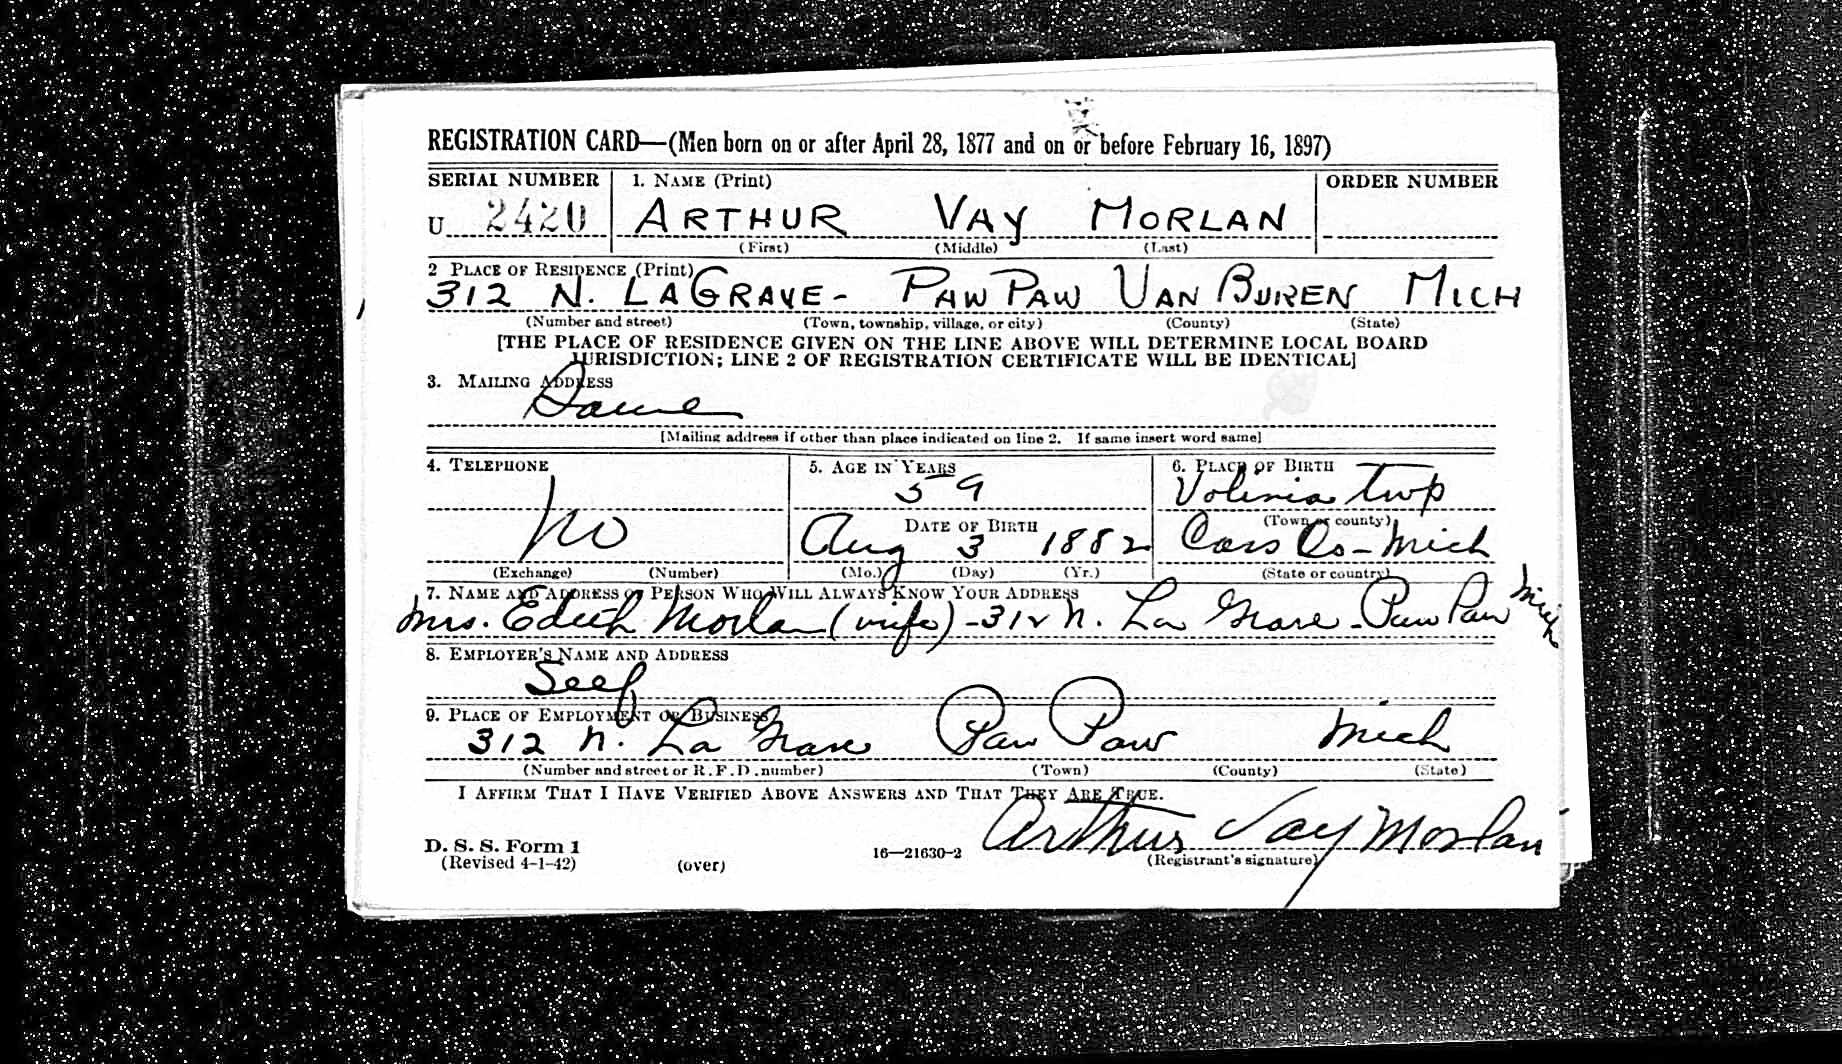 REGISTRATION CARD—(Men born on or after April 28, 1877 and on or before February 16, 1897)
SERIAL NUMBER 1. NAME (Print) ORDER NUMBER
U 2420 ARTHUR VAY MORLAN
(First) (Middle) (Last)
2 PLACE OF RESIDENCE (Print)
312 N. LAGRAVE- PAW PAW VAN BUREN MICH
(Number and street) (Town, township, village, or city) (County) (State)
[THE PLACE OF RESIDENCE GIVEN ON THE LINE ABOVE WILL DETERMINE LOCAL BOARD
JURISDICTION; LINE 2 OF REGISTRATION CERTIFICATE WILL BE IDENTICAL]
3. MAILING ADDRESS
Same
[Mailing address if other than place indicated on line 2. If same insert word same]
4. TELEPHONE 5. AGE IN YEARS 6. PLACE OF BIRTH
59 Volinia twp
DATE OF BIRTH (Town or county)
No Aug 3 1882 Cass Co-Mich
(Exchange) (Number) (Mo.) (Day) (Yr.) (State or country)
7. NAME AND ADDRESS OF PERSON WHO WILL ALWAYS KNOW YOUR ADDRESS
Mrs. Edith Morlan (wife) -312 N. La Grave - Paw Paw Mich
8. EMPLOYER'S NAME AND ADDRESS
Self
9. PLACE OF EMPLOYMENT OR BUSINESS
312 N. La Grave Paw Paw Mich
(Number and street or R. F. D. number) (Town) (County) (State)
I AFFIRM THAT I HAVE VERIFIED ABOVE ANSWERS AND THAT THEY ARE TRUE.
Arthur Vay Morlan
D. S. S. Form 1
(Revised 4-1-42) (over) 16—21630-2 (Registrant's signature)